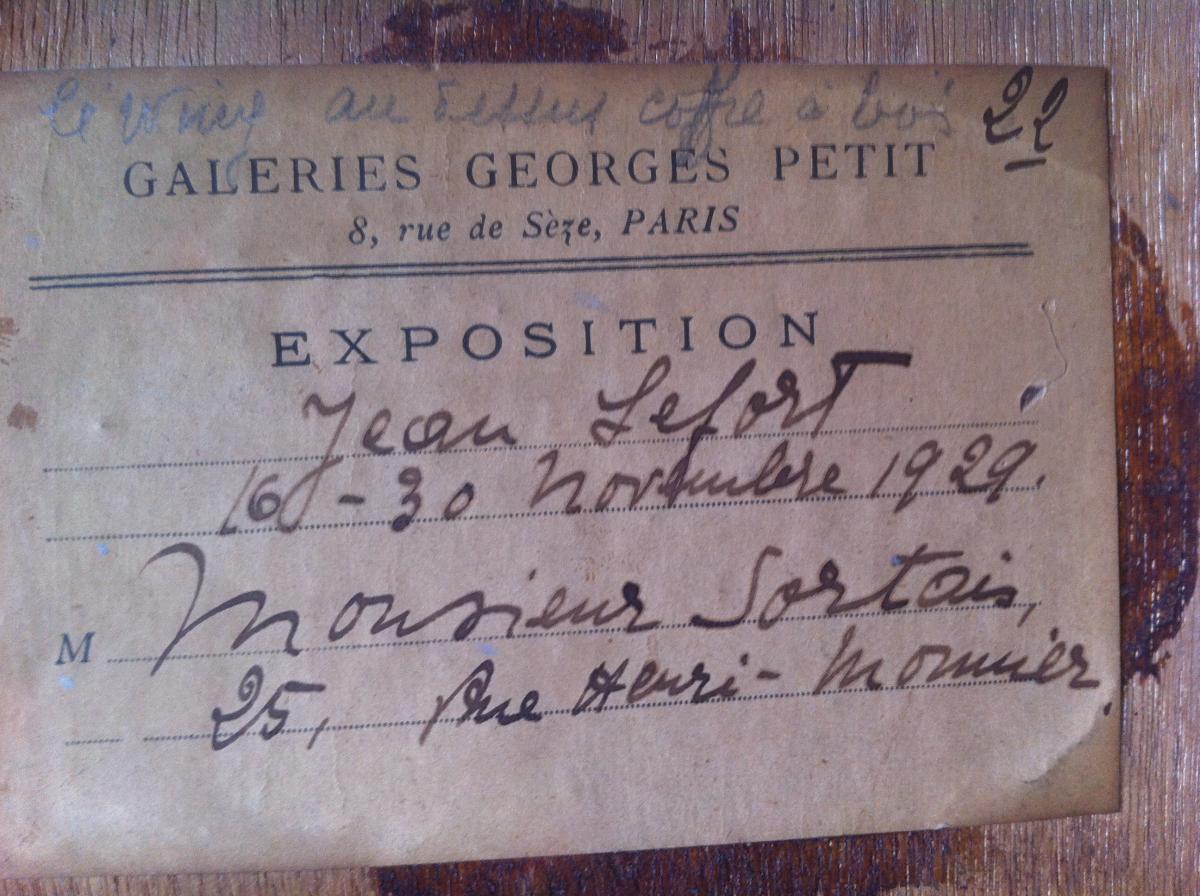 au dessus coffre à bois 22
GALERIES GEORGES PETIT
8, rue de Sèze, PARIS
EXPOSITION
Jean Lefort
16 - 30 Novembre 1929.
M Monsieur Sortais,
25, Rue Henri-Monnier.